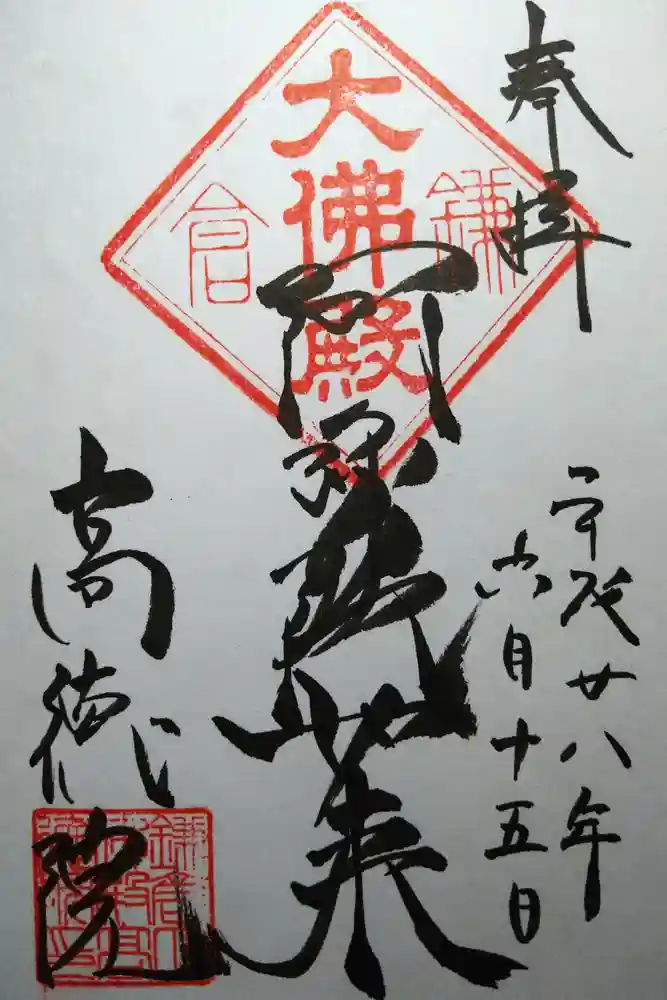 奉拝
平成廿八年
六月十五日
鎌倉
大佛殿
阿弥陀如来
高徳院